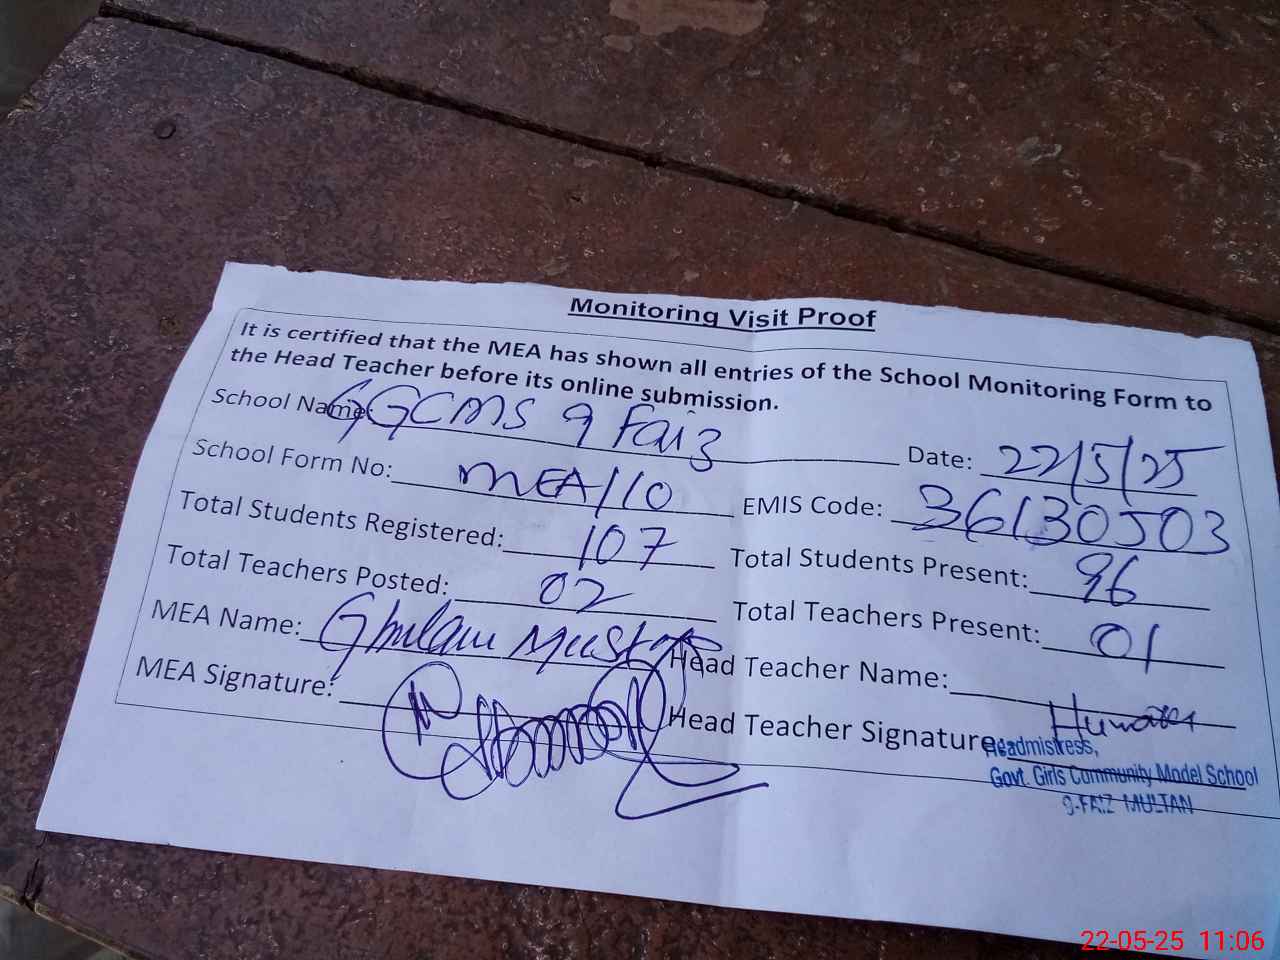 Monitoring Visit Proof
It is certified that the MEA has shown all entries of the School Monitoring Form to
the Head Teacher before its online submission.
School Name: GGCMS 9 Faiz Date: 22/5/25
School Form No: MEA/10 EMIS Code: 36130503
Total Students Registered: 107 Total Students Present: 96
Total Teachers Posted: 02 Total Teachers Present: 01
MEA Name: Ghulam Mustafa Head Teacher Name:
MEA Signature: Head Teacher Signature
Headmistress,
Govt. Girls Community Model School
9-FAIZ MULTAN
22-05-25 11:06